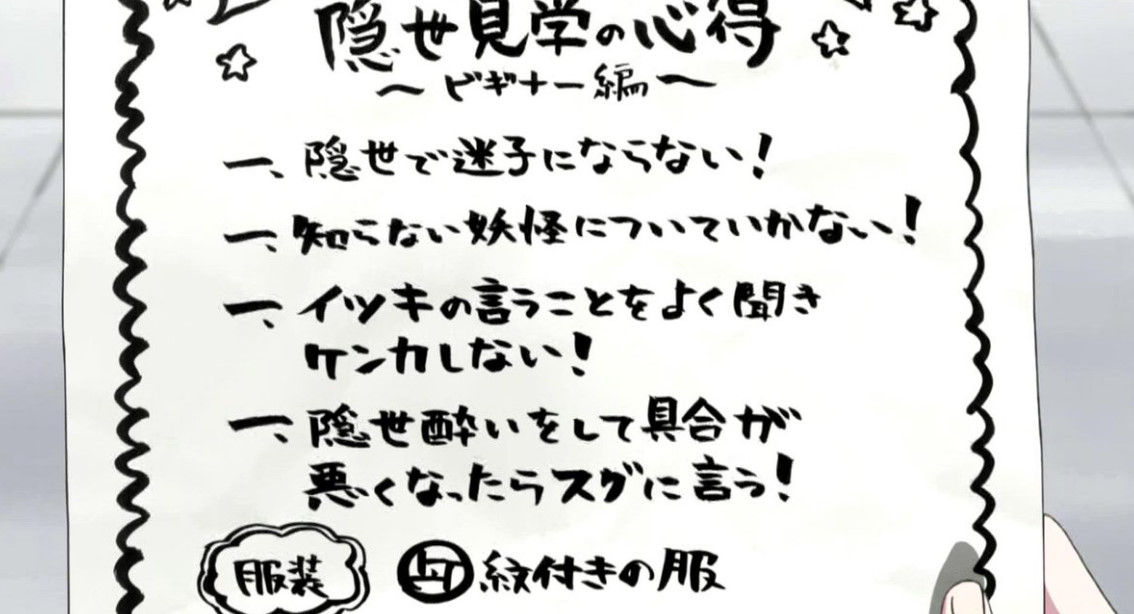 隠世見学の心得
～ビギナー編～
一、隠世で迷子にならない！
一、知らない妖怪についていかない！
一、イツキの言うことをよく聞き
ケンカしない！
一、隠世酔いをして具合が
悪くなったらスグに言う！
服装 紋付きの服